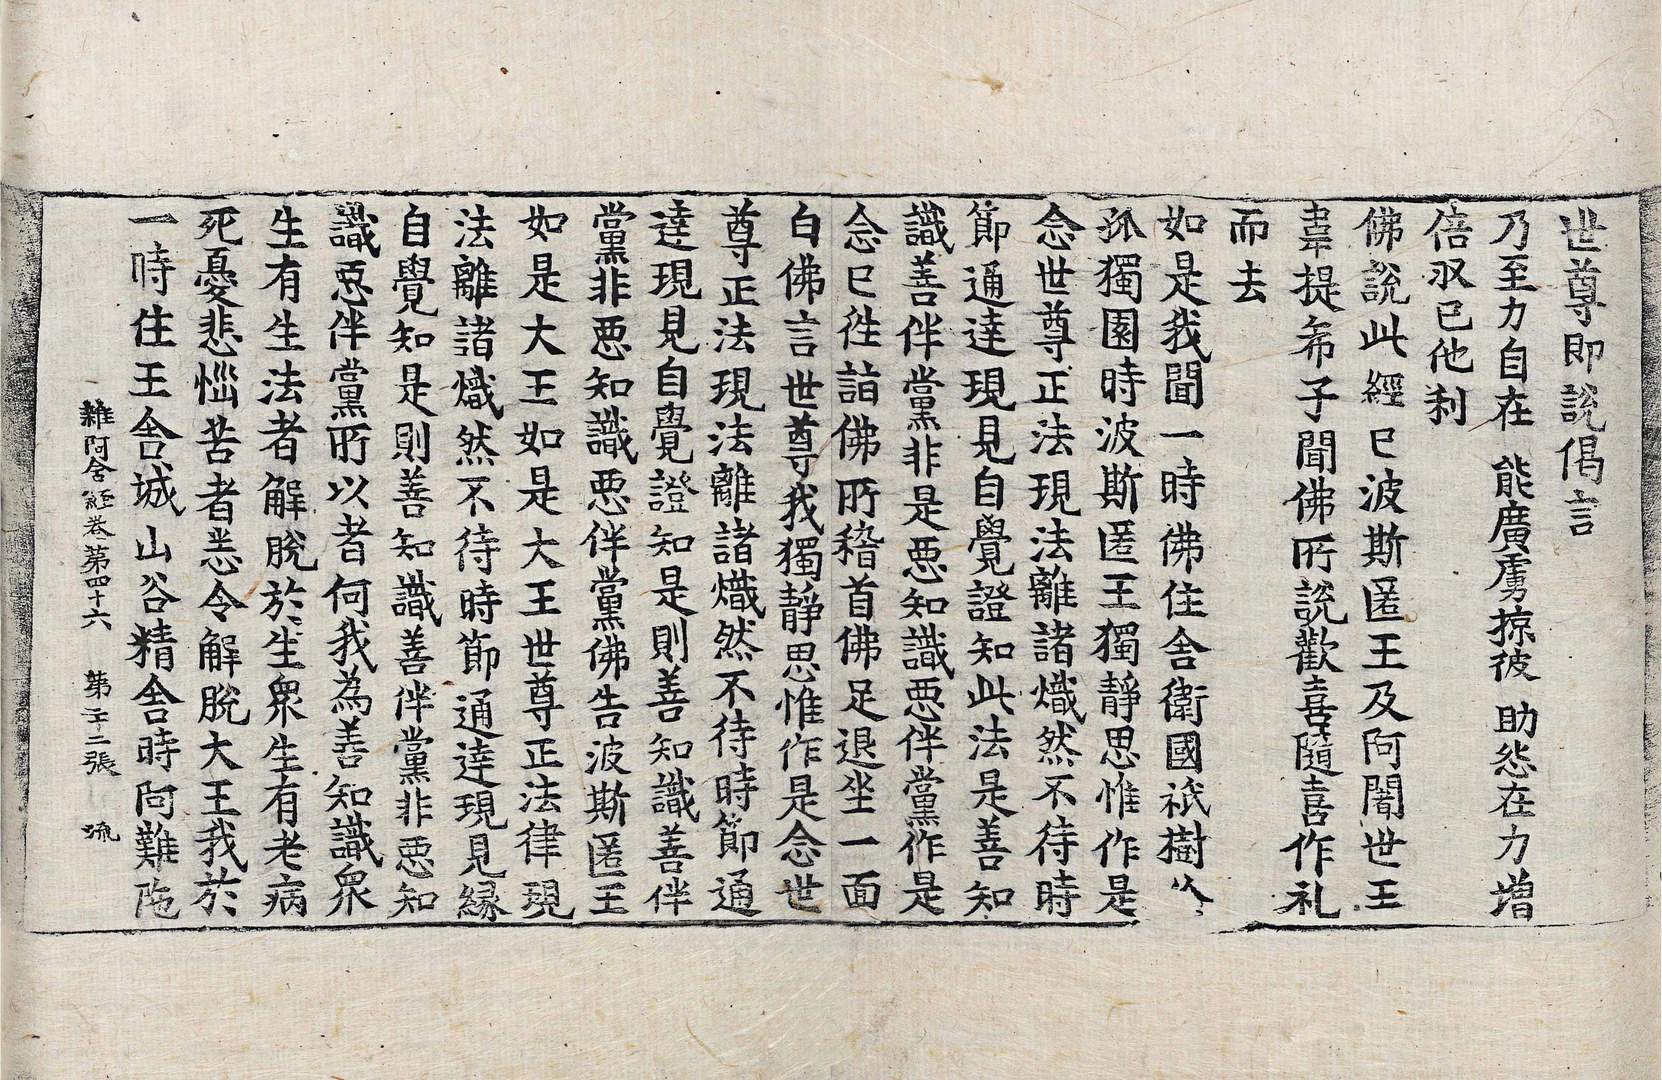 世尊即說偈言
乃至力自在 能廣虜掠彼 助怨在力增
倍収已他利
佛說此經已波斯匿王及阿闍世王
韋提希子聞佛所說歡喜隨喜作礼
而去
如是我聞一時佛住舍衛國祇樹
孤獨園時波斯匿王獨靜思惟作是
念世尊正法現法離諸熾然不待時
節通達現見自覺證知此法是善知
識善伴黨非是惡知識惡伴黨作是
念已往詣佛所稽首佛足退坐一面
白佛言世尊我獨靜思惟作是念世
尊正法現法離諸熾然不待時節通
達現見自覺證知是則善知識善伴
黨非惡知識惡伴黨佛告波斯匿王
如是大王如是大王世尊正法律現
法離諸熾然不待時節通達現見緣
自覺知是則善知識善伴黨非惡知
識惡伴黨所以者何我為善知識眾
生有生法者解脫於生眾生有老病
死憂悲惱苦者悉令解脫大王我於
一時住王舍城山谷精舍時阿難陁
雜阿含經卷第四十六 第二十二張 流